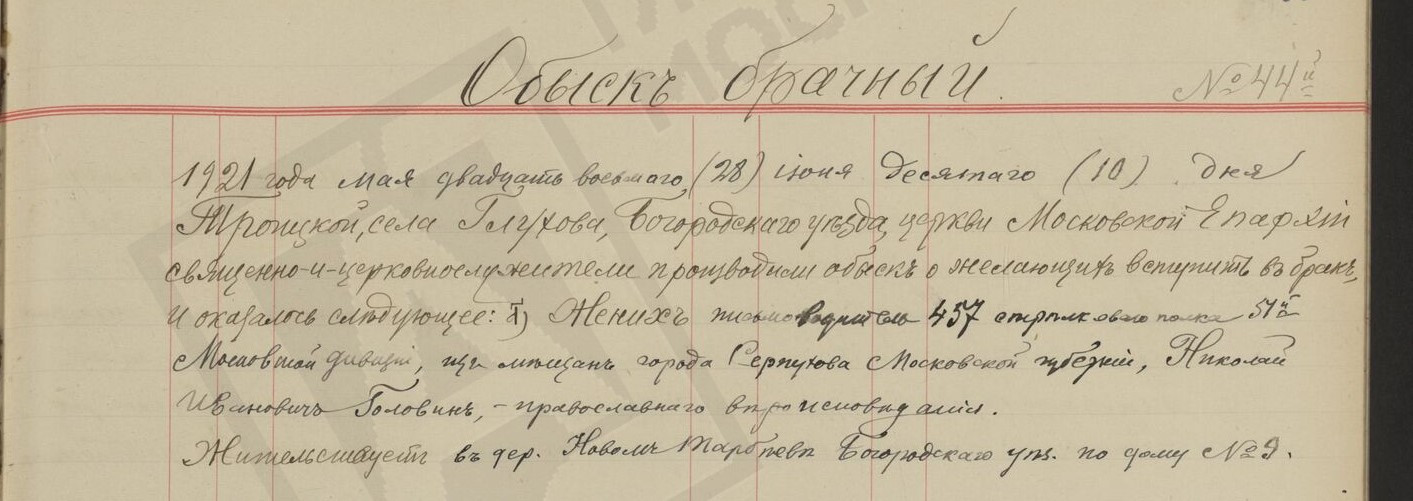 Обыскъ брачный.
№ 44й
1921 года мая двадцать восьмаго, (28) іюня десятаго (10) дня
Троицкой, села Глухова, Богородскаго уѣзда, церкви Московской Епархіи
священно-и-церковнослужители производили обыскъ о желающихъ вступить въ бракъ,
и оказалось слѣдующее: 1) Женихъ письмоводитель 457 стрѣлковаго полка 51й
Московской дивизіи, изъ мѣщанъ города Серпухова Московской губерніи, Николай
Ивановичъ Головинъ, - православнаго вѣроисповѣданія.
Жительствуетъ въ дер. Новомъ Богородскаго уѣз. по дому № 9.